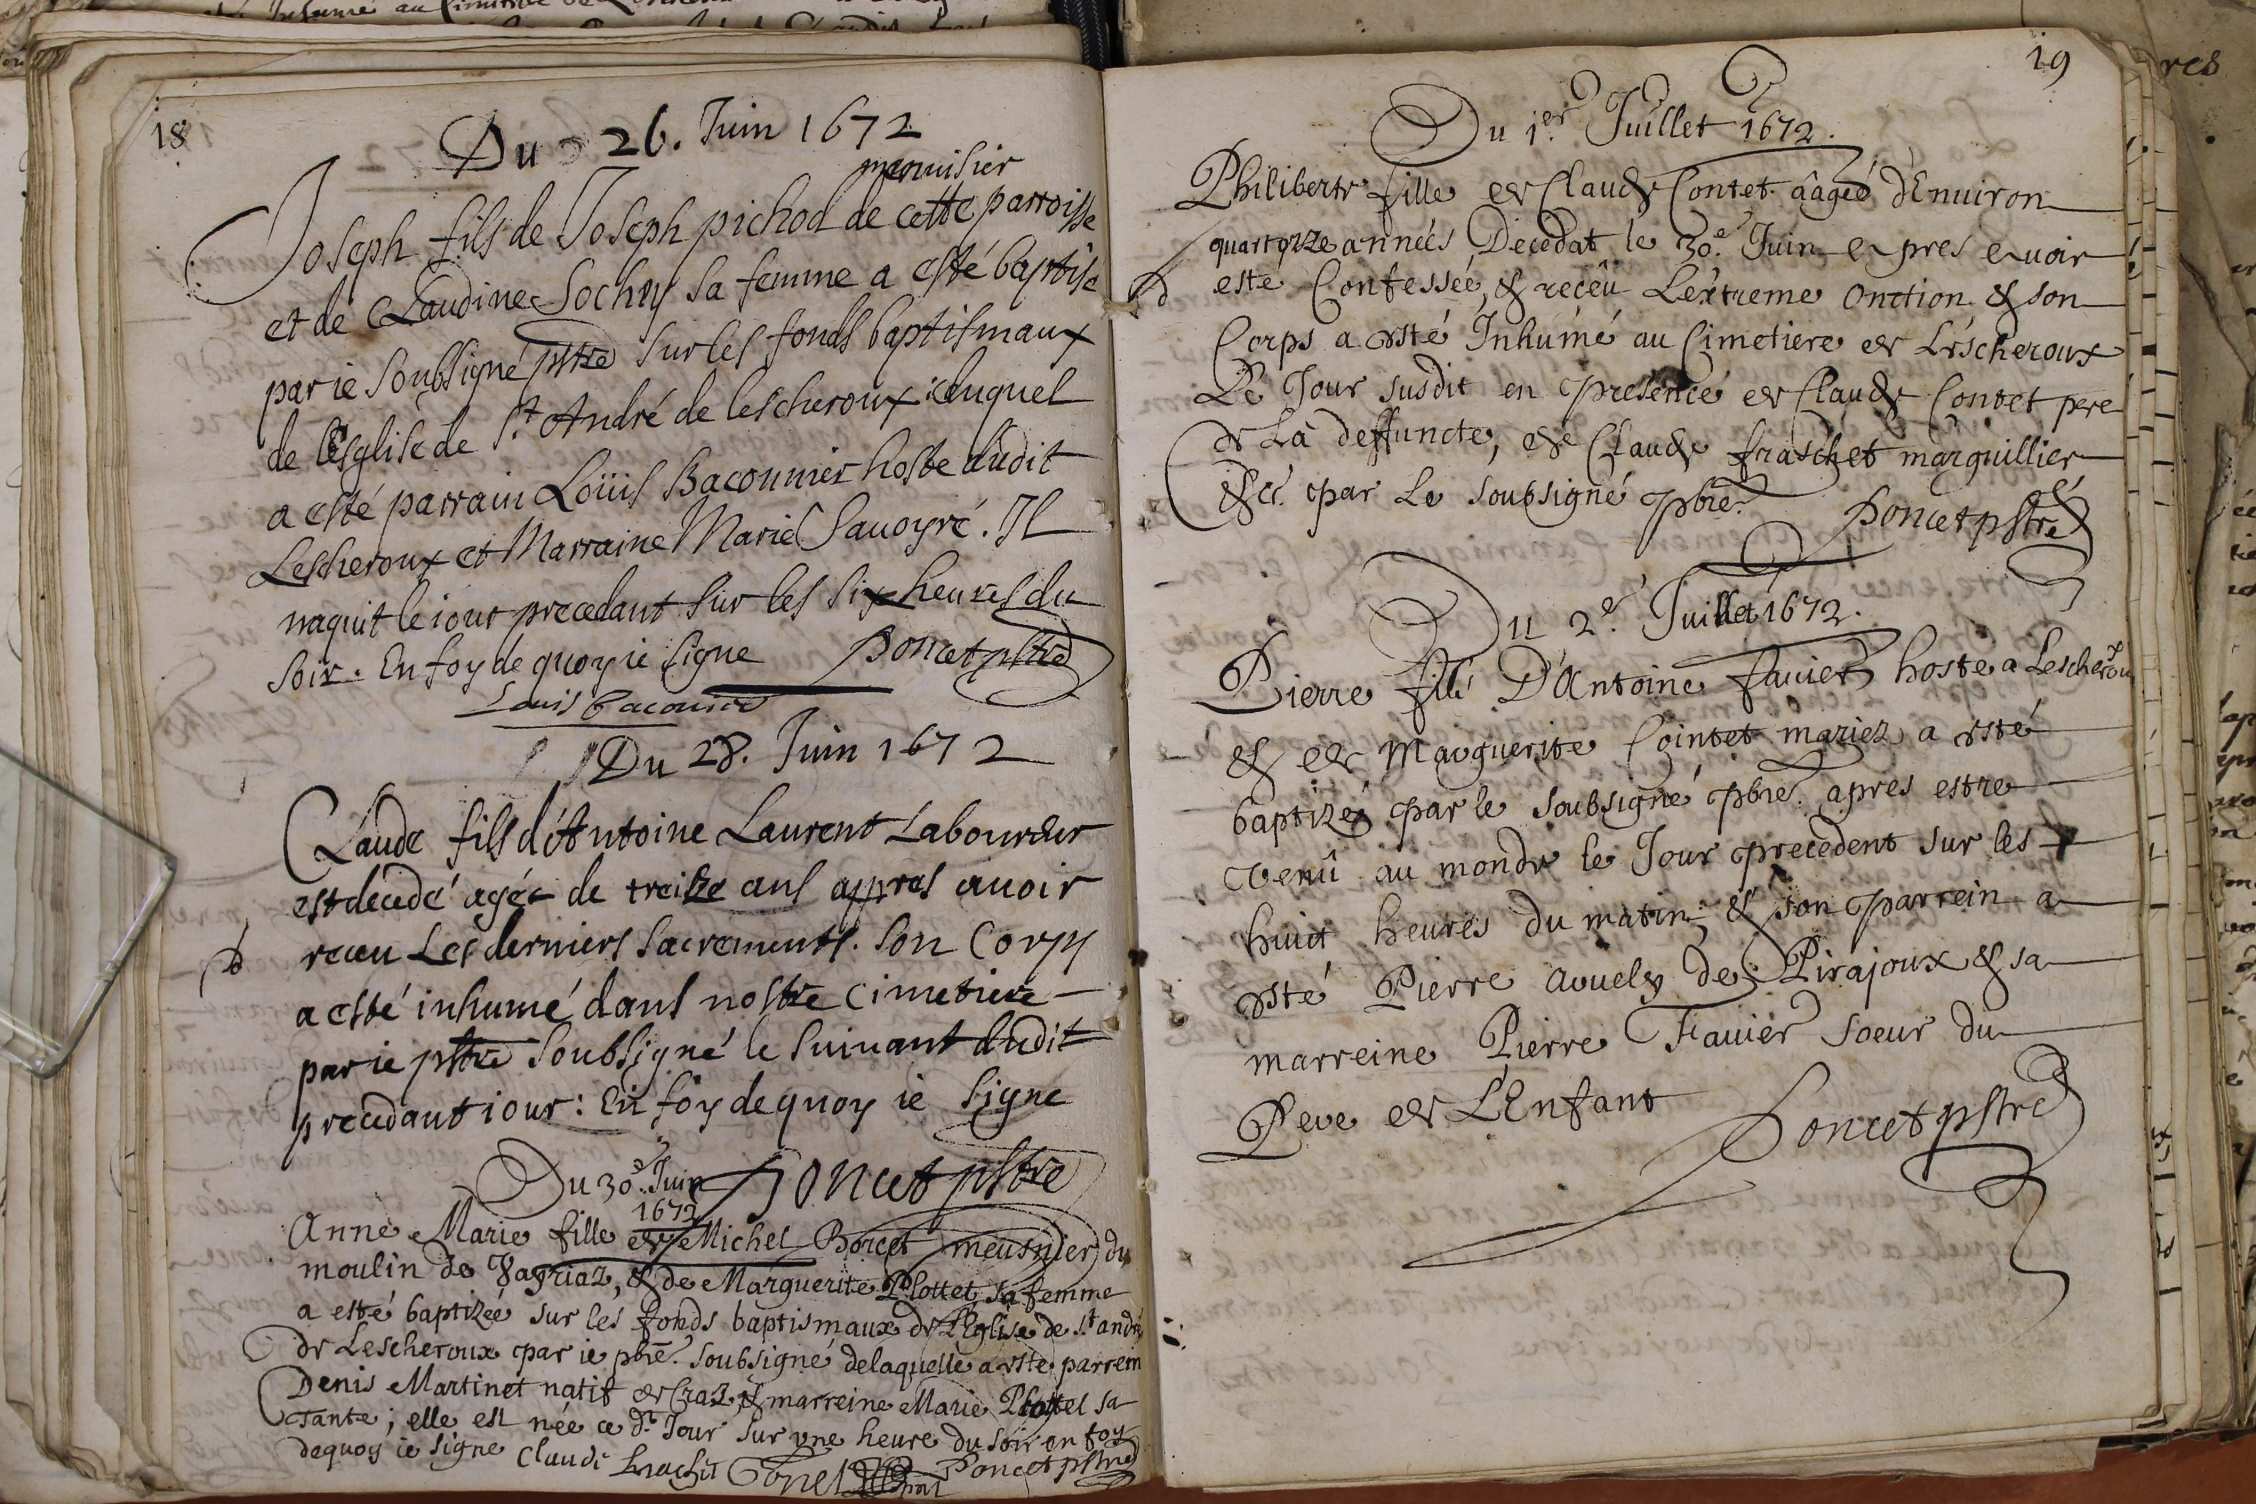 18
Du 26. Juin 1672
menuisier
Joseph fils de Joseph pichod de cette parroisse
et de Claudine Sochay sa femme a esté baptise
par ie soubsigné pstre sur les fonds baptismaux
de lesglise de St André de lescheroux: duquel
a esté parrain Loüis Baconnier hoste dudit
Lescheroux et Marraine Marie Savoyré. Il
naquit le iour precedant sur les six heures du
soir. En foy de quoy ie signe Poncet pstre
Louis baconier
Du 28. Juin 1672
Claude fils d'Antoine Laurent Laboureur
est décedé agée de treize ans appres avoir
receu Les derniers sacrements. son Corps
a esté inhumé dans nostre cimetiere
par ie pstre soubsigné le suivant dudit
precedant iour: En foy de quoy ie signe
Du 30e. Juin Poncet pstre
1672
Anne Marie fille de Michel Borcet meusnier du
moulin de & de Marguerite Plottet sa femme
a esté baptizeé sur les fonds baptismaux de l'Eglise de St andré
de Lescheroux par ie pbre. soubsigné delaquelle a este parrein
Denis Martinet natif de Craz, & marreine Marie Plottet sa
Tante; elle est née ce dt Jour sur vne heure du soir en foy
dequoy ie signe Claude Poncet pstre
19
Du 1er. Juillet 1672.
Philiberte fille de Claude Contet aâgeé d'Enuiron
quartorze années Decedat le 30e. Juin apres avoir
esté Confesseé, & receû L'extreme Onction & son
Corps a esté Inhumé au Cimetiere de Lescheroux
Le Jour susdit en presence de Claude Contet pere
de La deffuncte, & de Claude fraschet marguillier
&c. par Le soubsigné pbre. Poncet pstre
Du 2e. Juillet 1672.
Pierre fils D'Antoine favier hoste a Lescheroux
& de Marguerite Cointet mariez a esté
baptizé par le soubsigné pbre. apres estre
venû au monde le Jour precedent sur les
huict heures du matin; & son parrein a
esté Pierre avuely de Pirajoux & sa
marreine Pierre Favier soeur du
Pere de L'Enfant
Poncet pstre